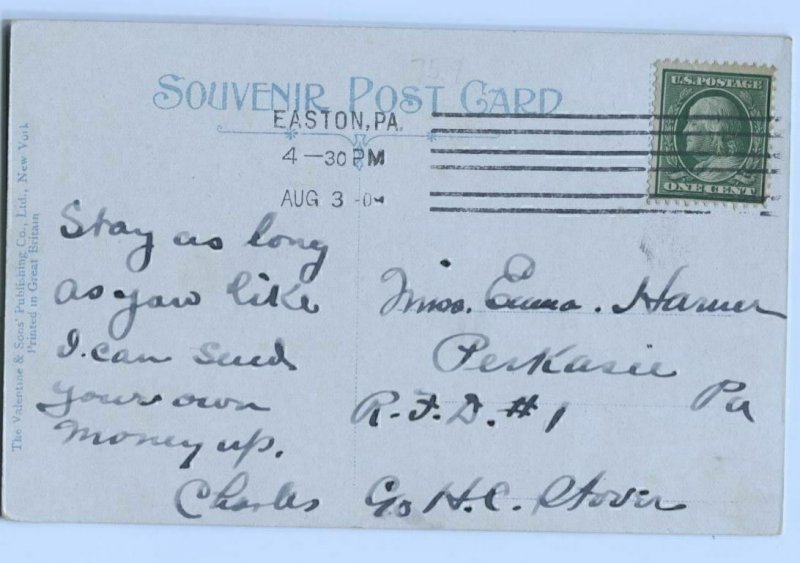 SOUVENIR POST CARD
EASTON, PA.
4 - 30 PM
AUG 3
U.S. POSTAGE
ONE CENT
Stay as long
as you like
I. can send
your own
money up.
Charles
Miss. Emma. Harner
Perkasie
Pa
R. F. D. #1
C/o H. C. Stover
The Valentine & Sons' Publishing Co., Ltd., New York
Printed in Great Britain